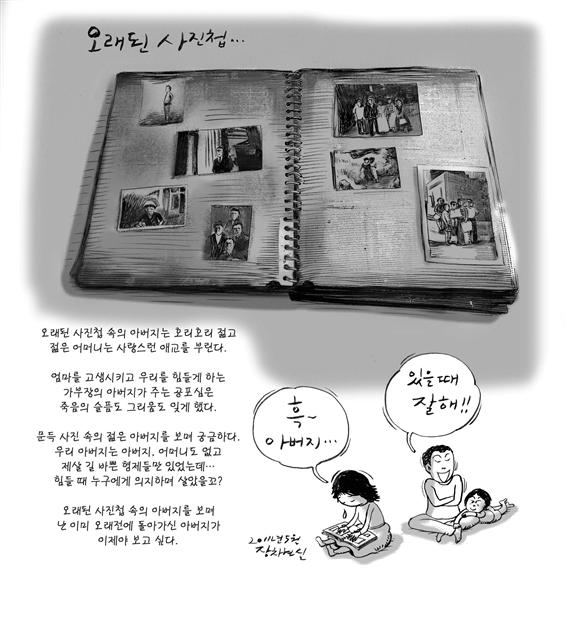 오래된 사진첩...
오래된 사진첩 속의 아버지는 꼬리꼬리 젊고
젊은 어머니는 사랑스런 애교를 부린다.
엄마를 고생시키고 우리를 힘들게 하는
가부장의 아버지가 주는 공포심은
죽음의 슬픔도 그리움도 잊게 했다.
문득 사진 속의 젊은 아버지를 보며 궁금하다.
우리 아버지는 아버지, 어머니도 없고
제살 길 바쁜 형제들만 있었는데...
힘들 때 누구에게 의지하며 살았을꼬?
오래된 사진첩 속의 아버지를 보며
난 이미 오래전에 돌아가신 아버지가
이제야 보고 싶다.
흑~
아버지...
있을때
잘해!!
2011년 5월